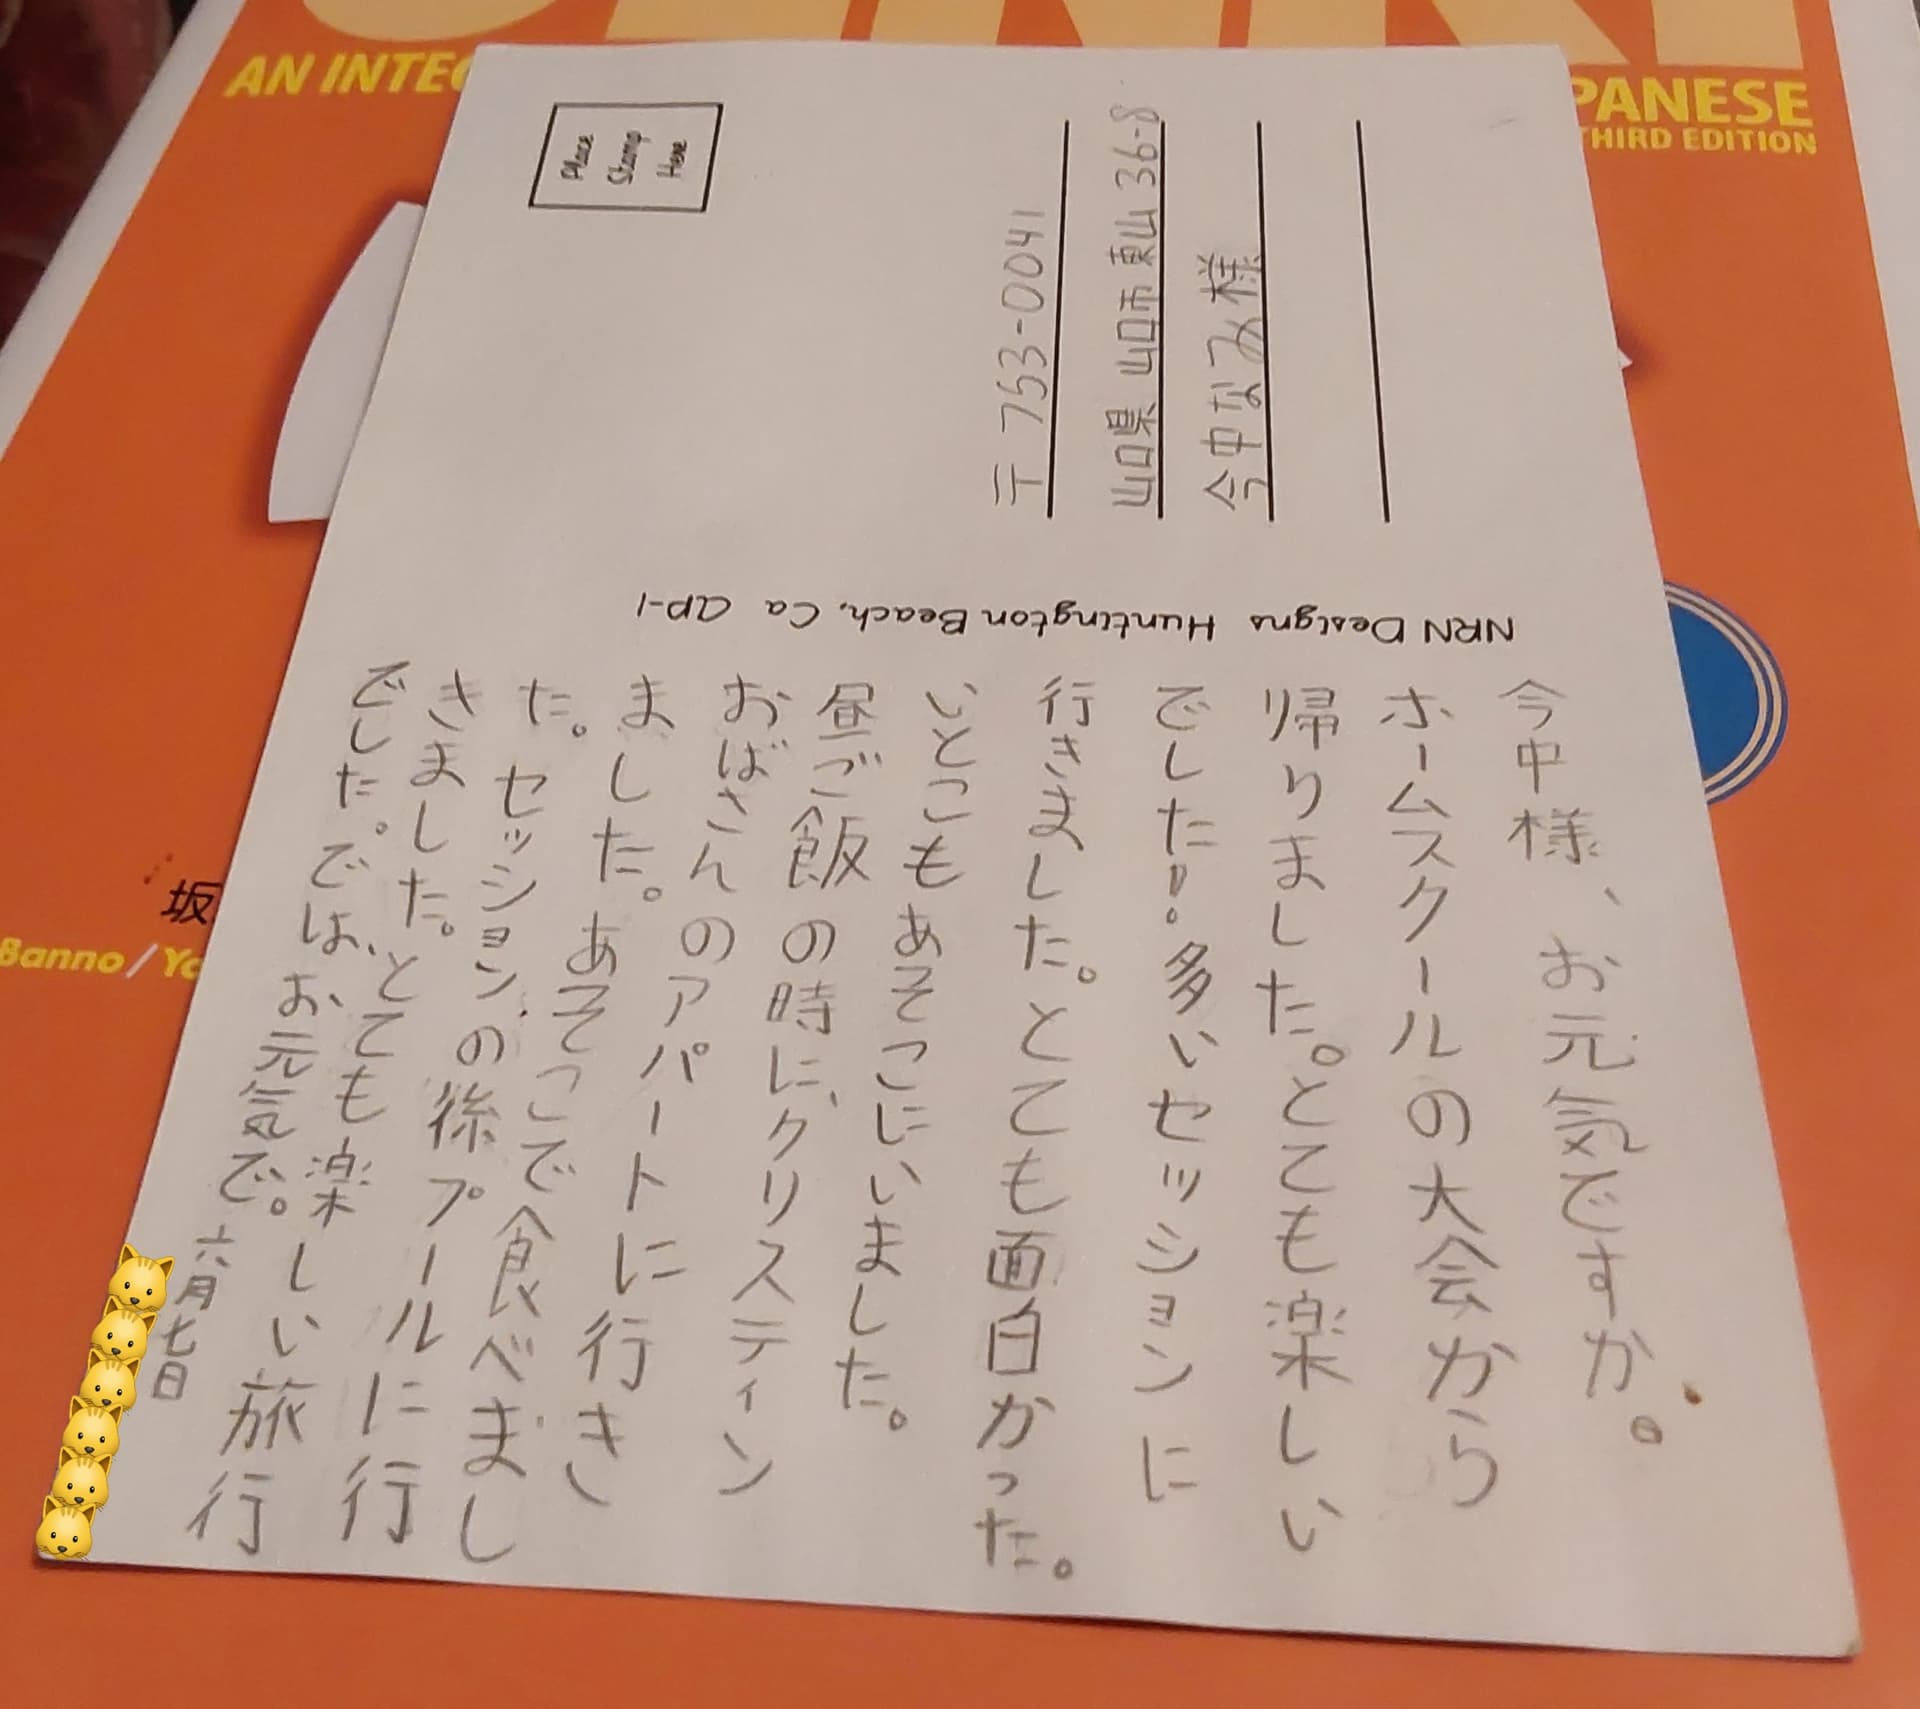 AN INTEG
PANESE
THIRD EDITION
Place
Stamp
Here
〒753-0041
山口県 山口市 東山 36-8
今中なみ様
NRN Designs Huntington Beach, Ca AP-1
今中様、お元気ですか。
ホームスクールの大会から
帰りました。とても楽しい
でした!多いセッションに
行きました。とても面白かった。
いとこもあそこにいました。
昼ご飯の時に、クリスティン
おばさんのアパートに行き
ました。あそこで食べまし
た。セッションの後プールに行
きました。とても楽しい旅行
でした。では、お元気で。
六月七日
坂
Banno / Yo